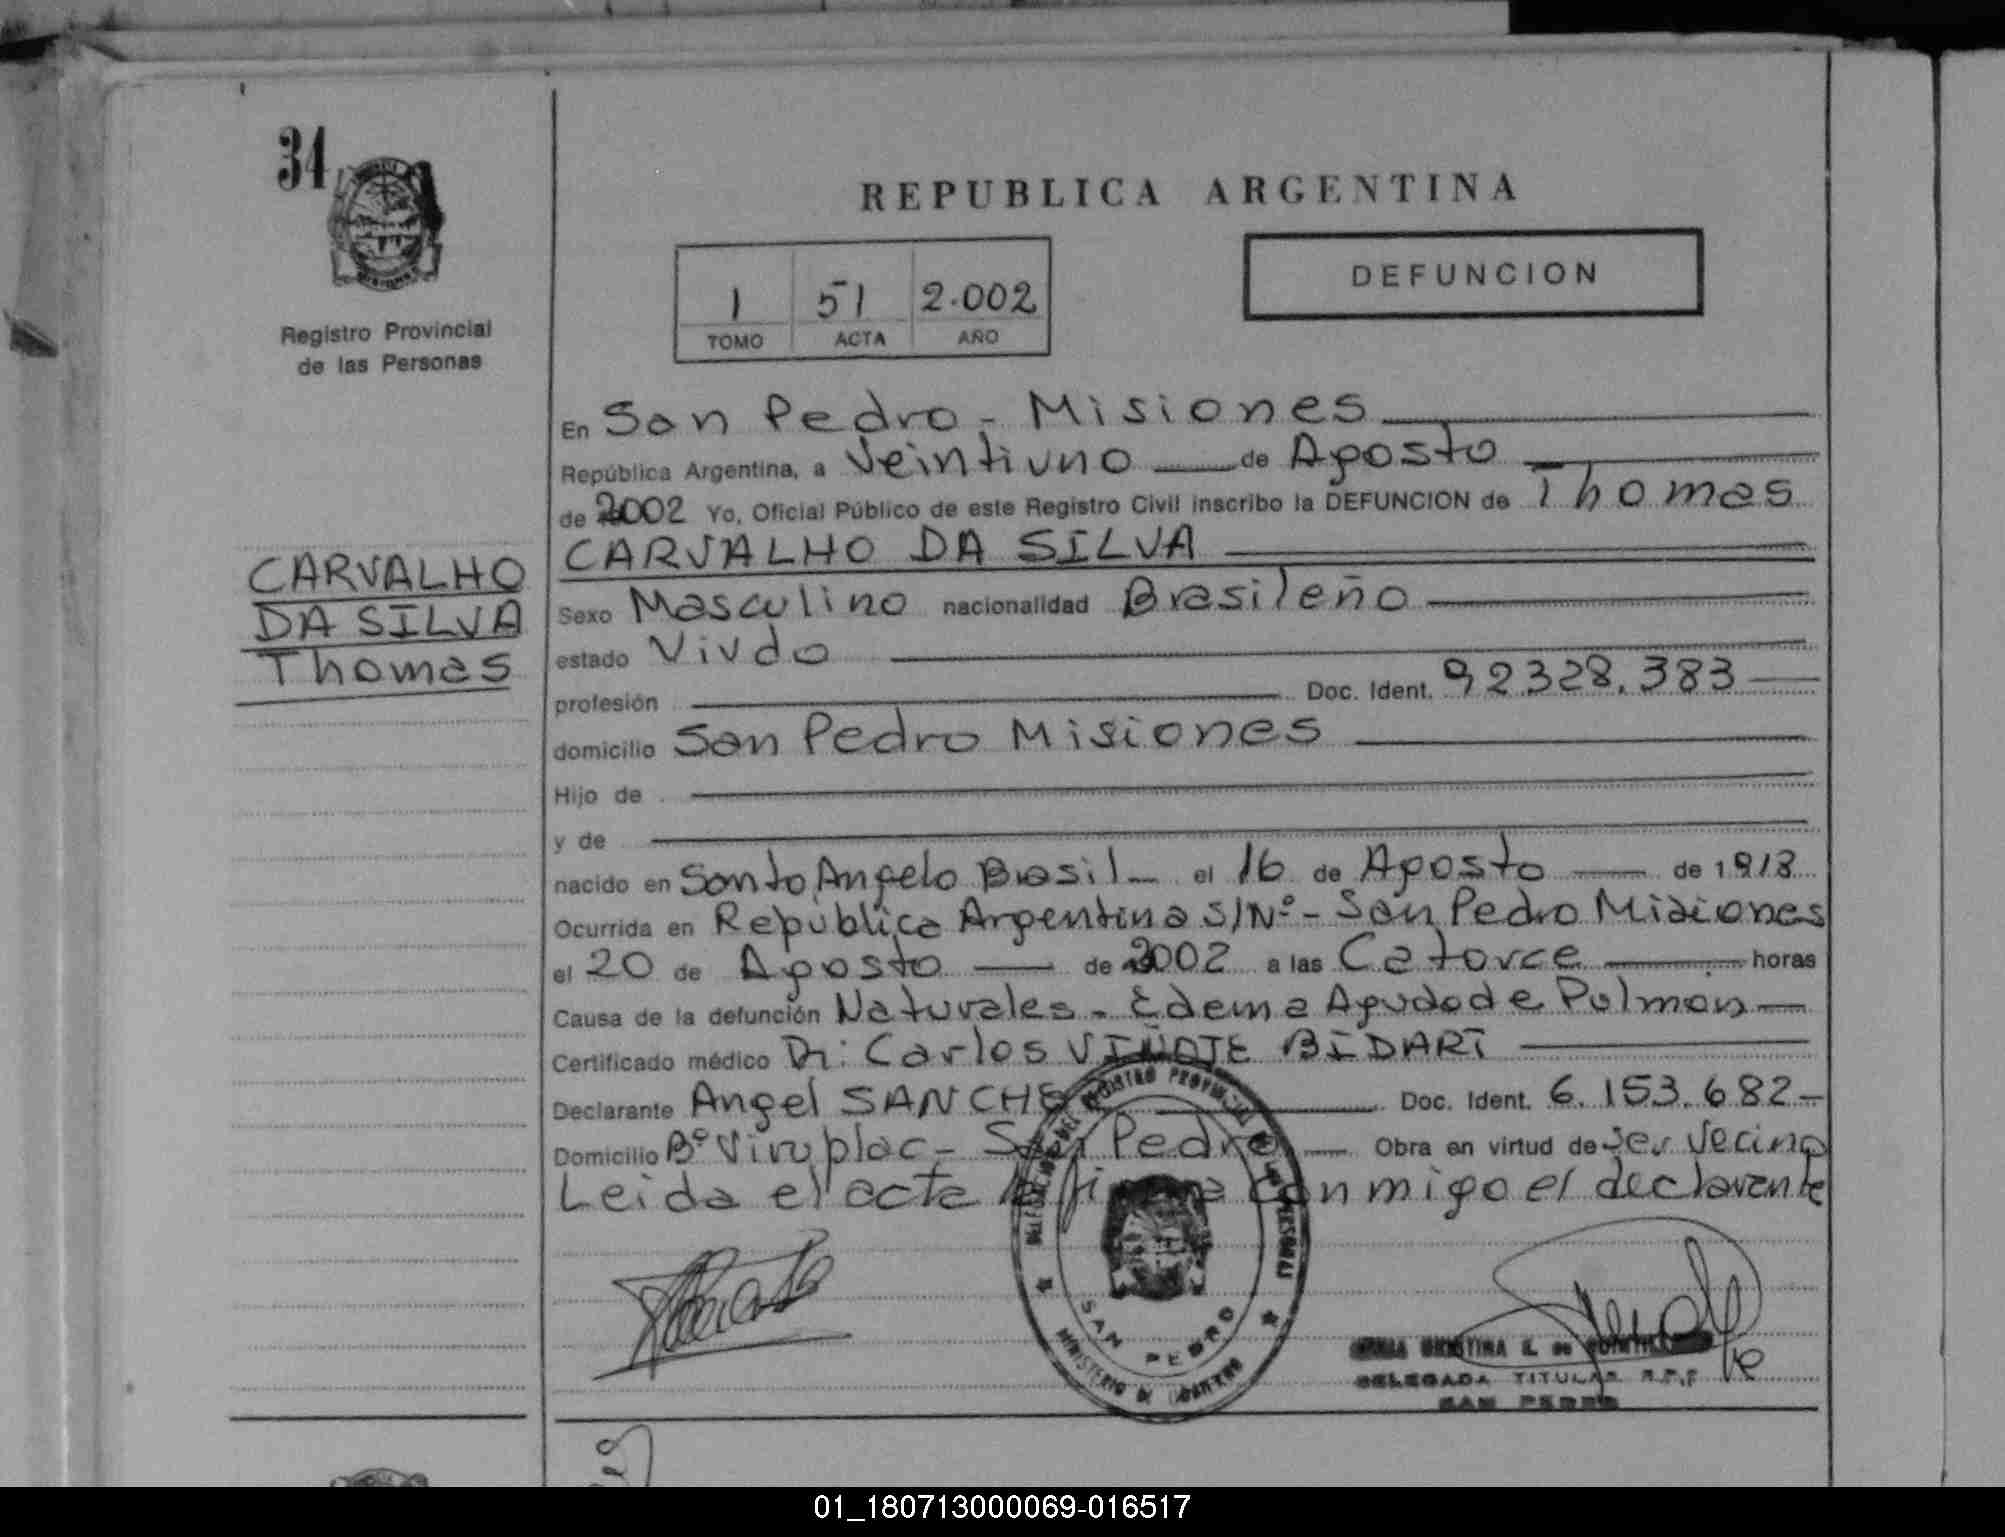 34
REPUBLICA ARGENTINA
1 51 2.002
TOMO ACTA AÑO
DEFUNCION
Registro Provincial
de las Personas
En San Pedro - Misiones
República Argentina, a Veintiuno de Agosto
de 2002 Yo, Oficial Público de este Registro Civil inscribo la DEFUNCION de Thomas
CARVALHO DA SILVA
CARVALHO
DA SILVA
Thomas
Sexo Masculino nacionalidad Brasileño
estado Viudo
profesión Doc. Ident. 92328.383
domicilio San Pedro Misiones
Hijo de
y de
nacido en Santo Angelo Brasil el 16 de Agosto de 1918
Ocurrida en República Argentina S/Nº - San Pedro Misiones
el 20 de Agosto de 2002 a las Catorce horas
Causa de la defunción Naturales - Edema Agudo de Pulmon
Certificado médico Dr: Carlos VIÑOTE BIDART
Declarante Angel SANCHEZ Doc. Ident. 6.153.682
Domicilio Bº Viruplac - San Pedro Obra en virtud de ser vecino
Leida el acta la firma conmigo el declarante
DELEGACION DEL REGISTRO PROVINCIAL DE LAS PERSONAS
SAN PEDRO
MINISTERIO DE GOBIERNO
CRISTINA
DELEGADA TITULAR R.P.P
SAN PEDRO
01_180713000069-016517